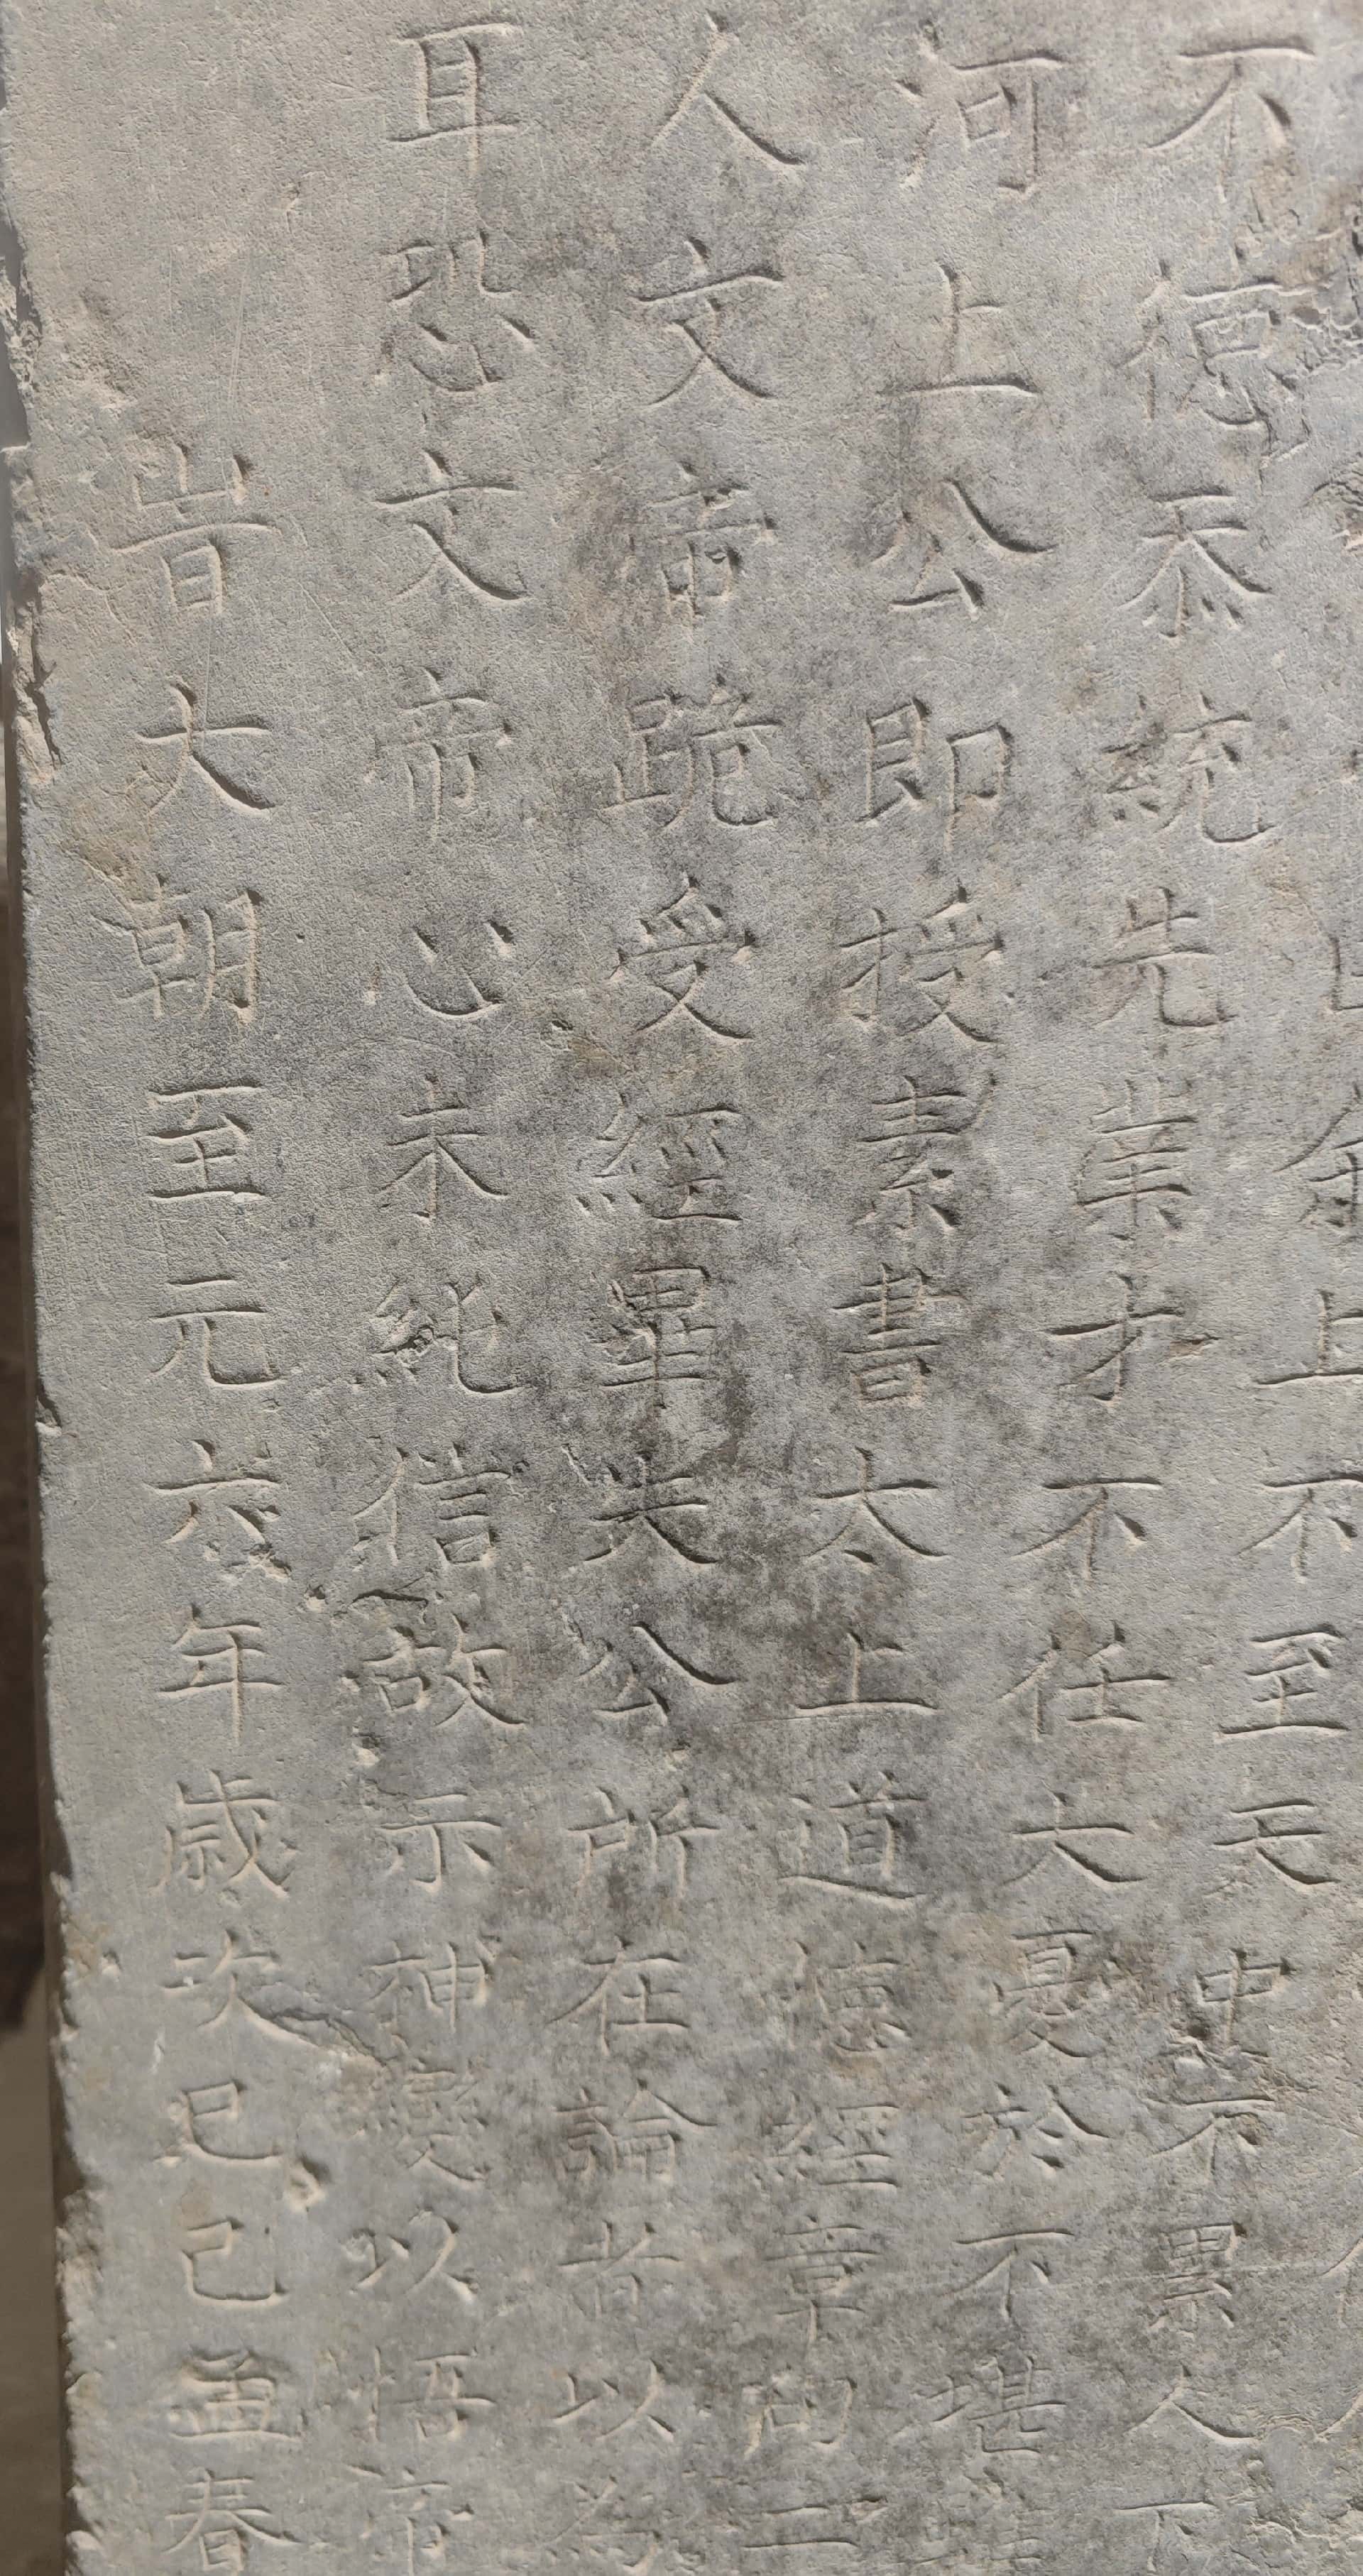 余上不至天中不累人下
不德忝統先業才不任大憂於不堪
河上公即授素書太上道德經章句二
人文帝跪受經畢失公所在論者以為
耳恐文帝心未純信故示神變以悟帝
旹大朝至元六年歲次巳己孟春